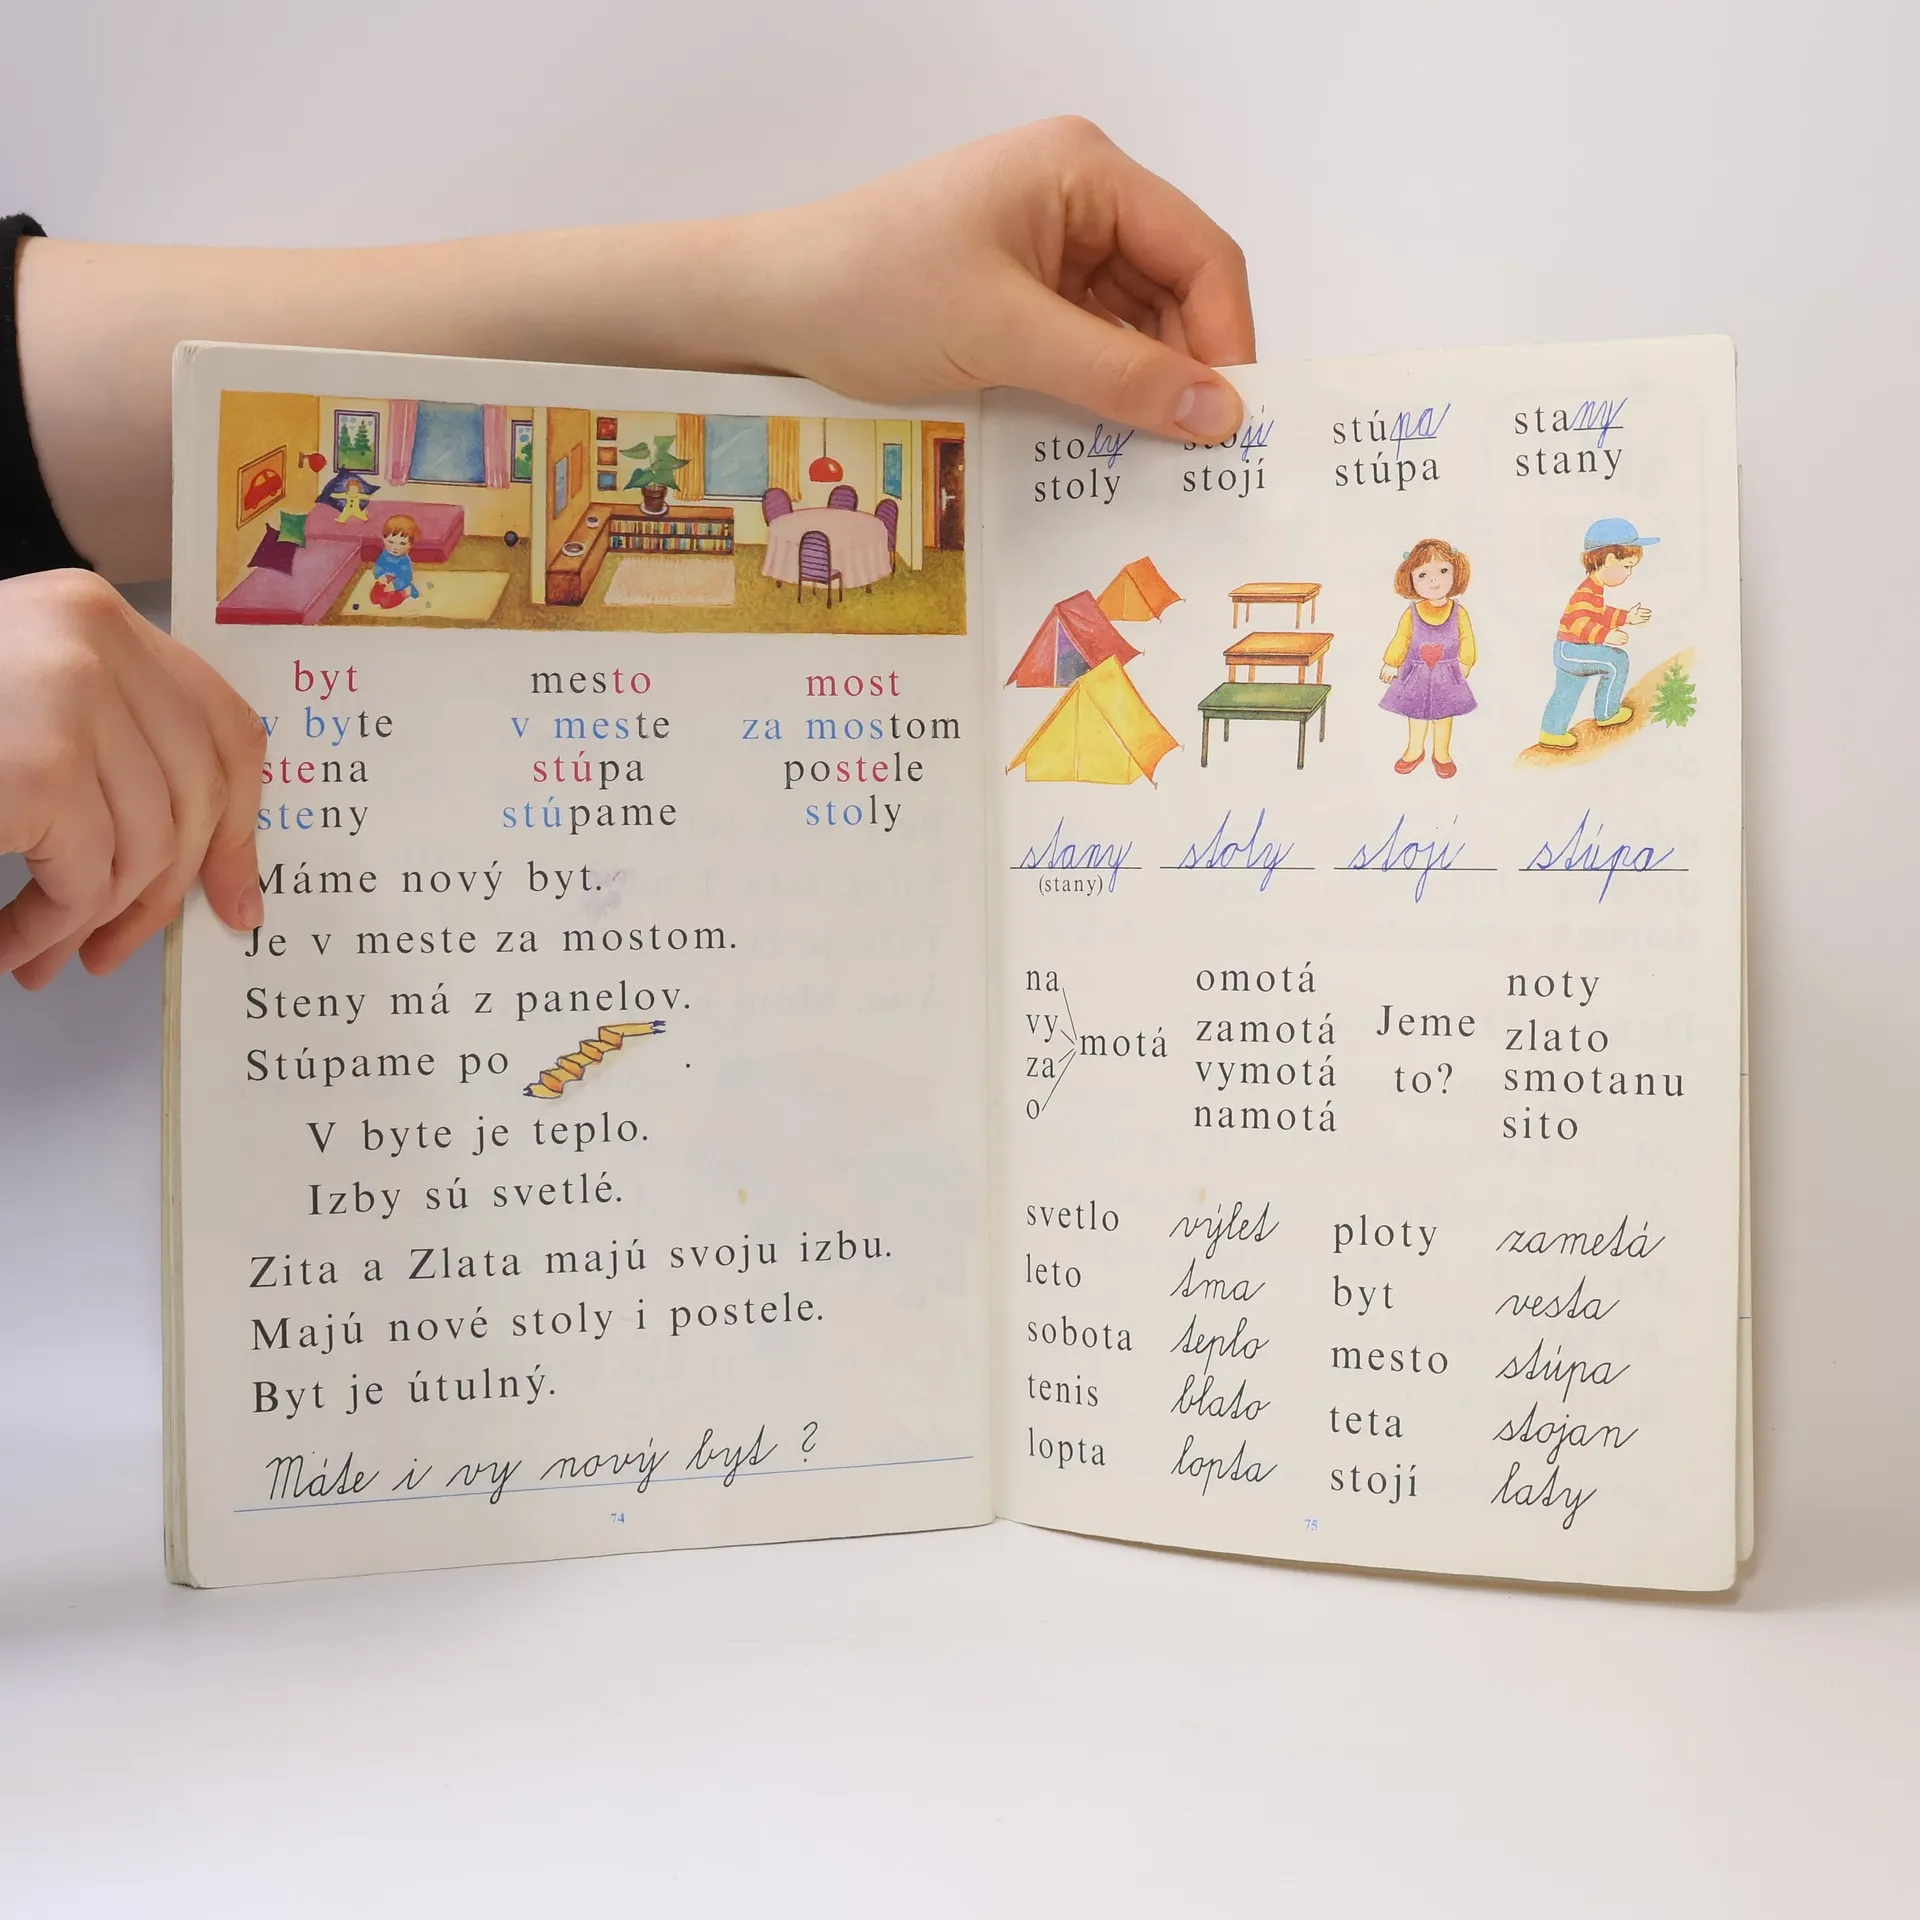 byt mesto most
v byte v meste za mostom
stena stúpa postele
steny stúpame stoly
Máme nový byt.
Je v meste za mostom.
Steny má z panelov.
Stúpame po .
V byte je teplo.
Izby sú svetlé.
Zita a Zlata majú svoju izbu.
Majú nové stoly i postele.
Byt je útulný.
Máte i vy nový byt ?
74
stoly stojí stúpa stany
stoly stojí stúpa stany
stany stoly stojí stúpa
(stany)
na
vy
za
o
motá
omotá
zamotá
vymotá
namotá
Jeme
to?
noty
zlato
smotanu
sito
svetlo výlet ploty zametá
leto tma byt vesta
sobota teplo mesto stúpa
tenis blato teta stojan
lopta lopta stojí laty
75